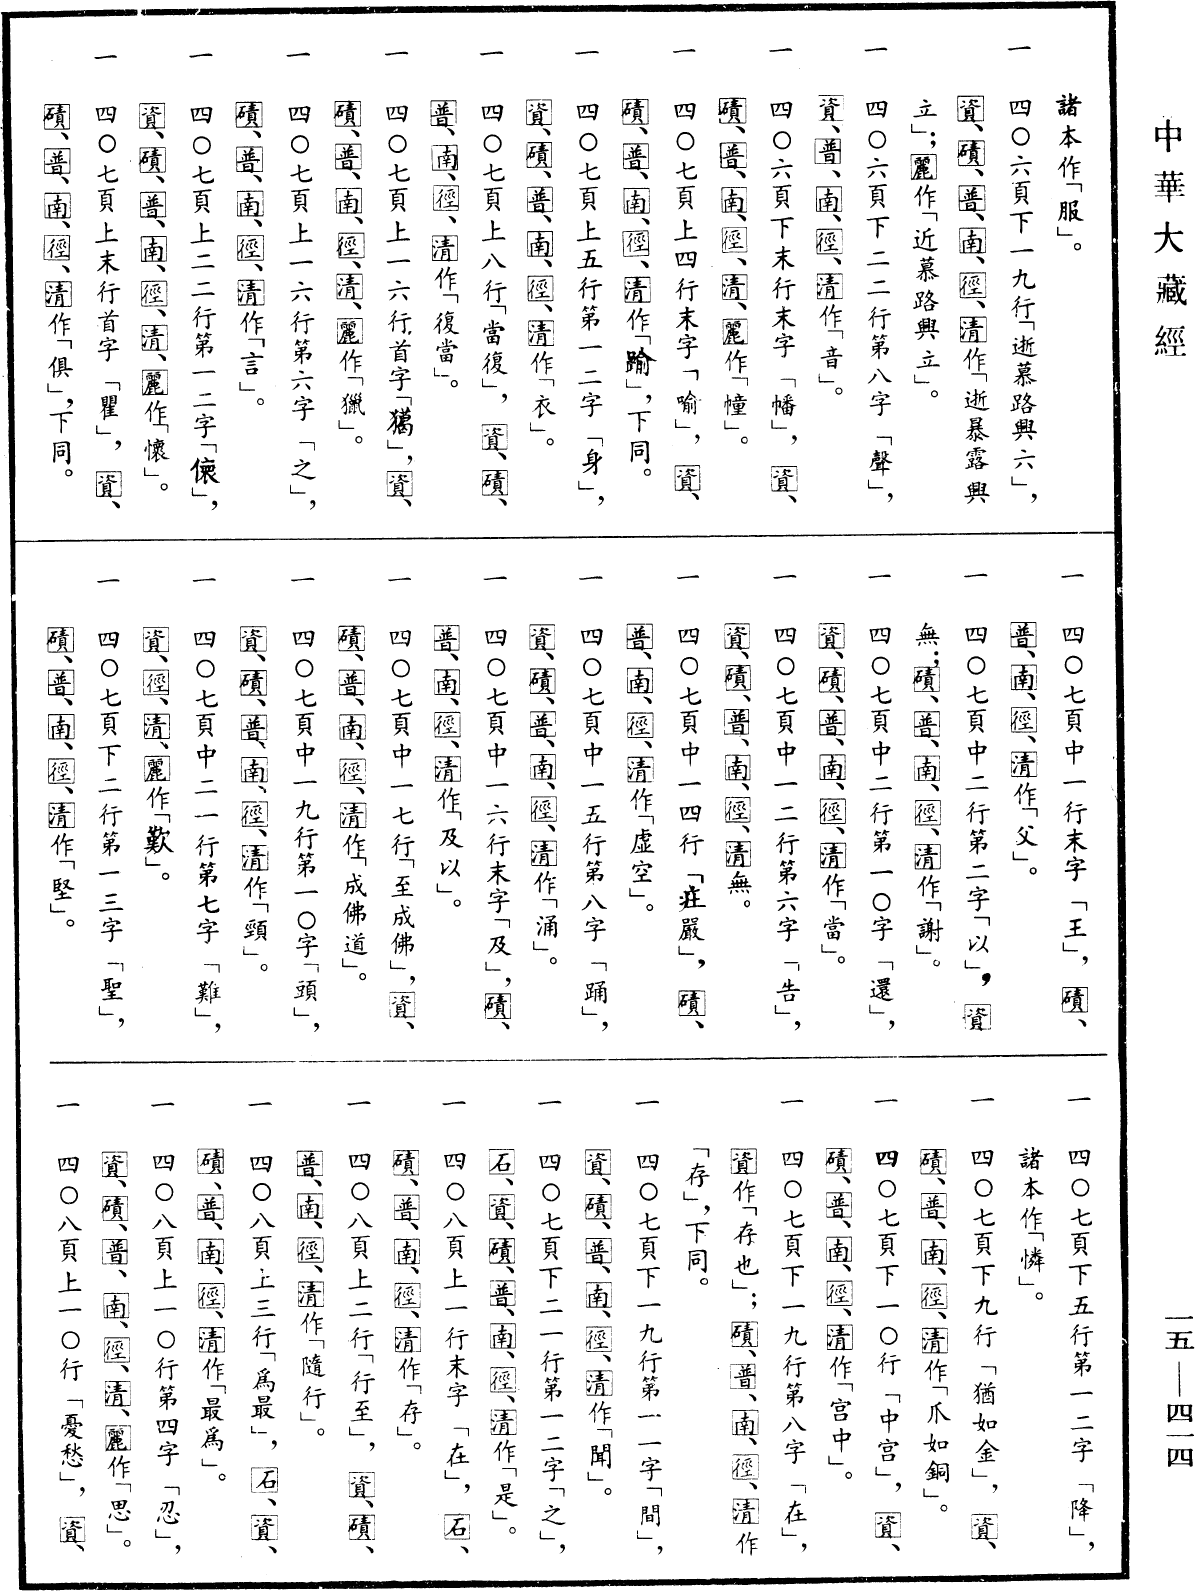 中華大藏經
一五—四一四
諸本作「服」。
一　四〇六頁下一九行「逝慕路興六」，
資、磧、普、南、徑、清作「逝暴露興
立」；麗作「近慕路興立」。
一　四〇六頁下二二行第八字「聲」，
資、普、南、徑、清作「音」。
一　四〇六頁下末行末字「幡」，資、
磧、普、南、徑、清、麗作「幢」。
一　四〇七頁上四行末字「喻」，資、
磧、普、南、徑、清作「踰」，下同。
一　四〇七頁上五行第一二字「身」，
資、磧、普、南、徑、清作「衣」。
一　四〇七頁上八行「當復」，資、磧、
普、南、徑、清作「復當」。
一　四〇七頁上一六行首字「獦」，資、
磧、普、南、徑、清、麗作「獵」。
一　四〇七頁上一六行第六字「之」，
磧、普、南、徑、清作「言」。
一　四〇七頁上二二行第一二字「㑋」，
資、磧、普、南、徑、清、麗作「懷」。
一　四〇七頁上末行首字「瞿」，資、
磧、普、南、徑、清作「俱」，下同。
一　四〇七頁中一行末字「王」，磧、
普、南、徑、清作「父」。
一　四〇七頁中二行第二字「以」，資
無；磧、普、南、徑、清作「謝」。
一　四〇七頁中二行第一〇字「還」，
資、磧、普、南、徑、清作「當」。
一　四〇七頁中一二行第六字「告」，
資、磧、普、南、徑、清無。
一　四〇七頁中一四行「莊嚴」，磧、
普、南、徑、清作「虛空」。
一　四〇七頁中一五行第八字「踊」，
資、磧、普、南、徑、清作「涌」。
一　四〇七頁中一六行末字「及」，磧、
普、南、徑、清作「及以」。
一　四〇七頁中一七行「至成佛」，資、
磧、普、南、徑、清作「成佛道」。
一　四〇七頁中一九行第一〇字「頭」，
資、磧、普、南、徑、清作「頸」。
一　四〇七頁中二一行第七字「難」，
資、徑、清、麗作「歎」。
一　四〇七頁下二行第一三字「聖」，
磧、普、南、徑、清作「堅」。
一　四〇七頁下五行第一二字「降」，
諸本作「憐」。
一　四〇七頁下九行「猶如金」，資、
磧、普、南、徑、清作「爪如銅」。
一　四〇七頁下一〇行「中宮」，資、
磧、普、南、徑、清作「宮中」。
一　四〇七頁下一九行第八字「在」，
資作「存也」；磧、普、南、徑、清作
「存」，下同。
一　四〇七頁下一九行第一一字「間」，
資、磧、普、南、徑、清作「聞」。
一　四〇七頁下二一行第一二字「之」，
石、資、磧、普、南、徑、清作「是」。
一　四〇八頁上一行末字「在」，石、
磧、普、南、徑、清作「存」。
一　四〇八頁上二行「行至」，資、磧、
普、南、徑、清作「隨行」。
一　四〇八頁上三行「為最」，石、資、
磧、普、南、徑、清作「最為」。
一　四〇八頁上一〇行第四字「忍」，
資、磧、普、南、徑、清、麗作「思」。
一　四〇八頁上一〇行「憂愁」，資、